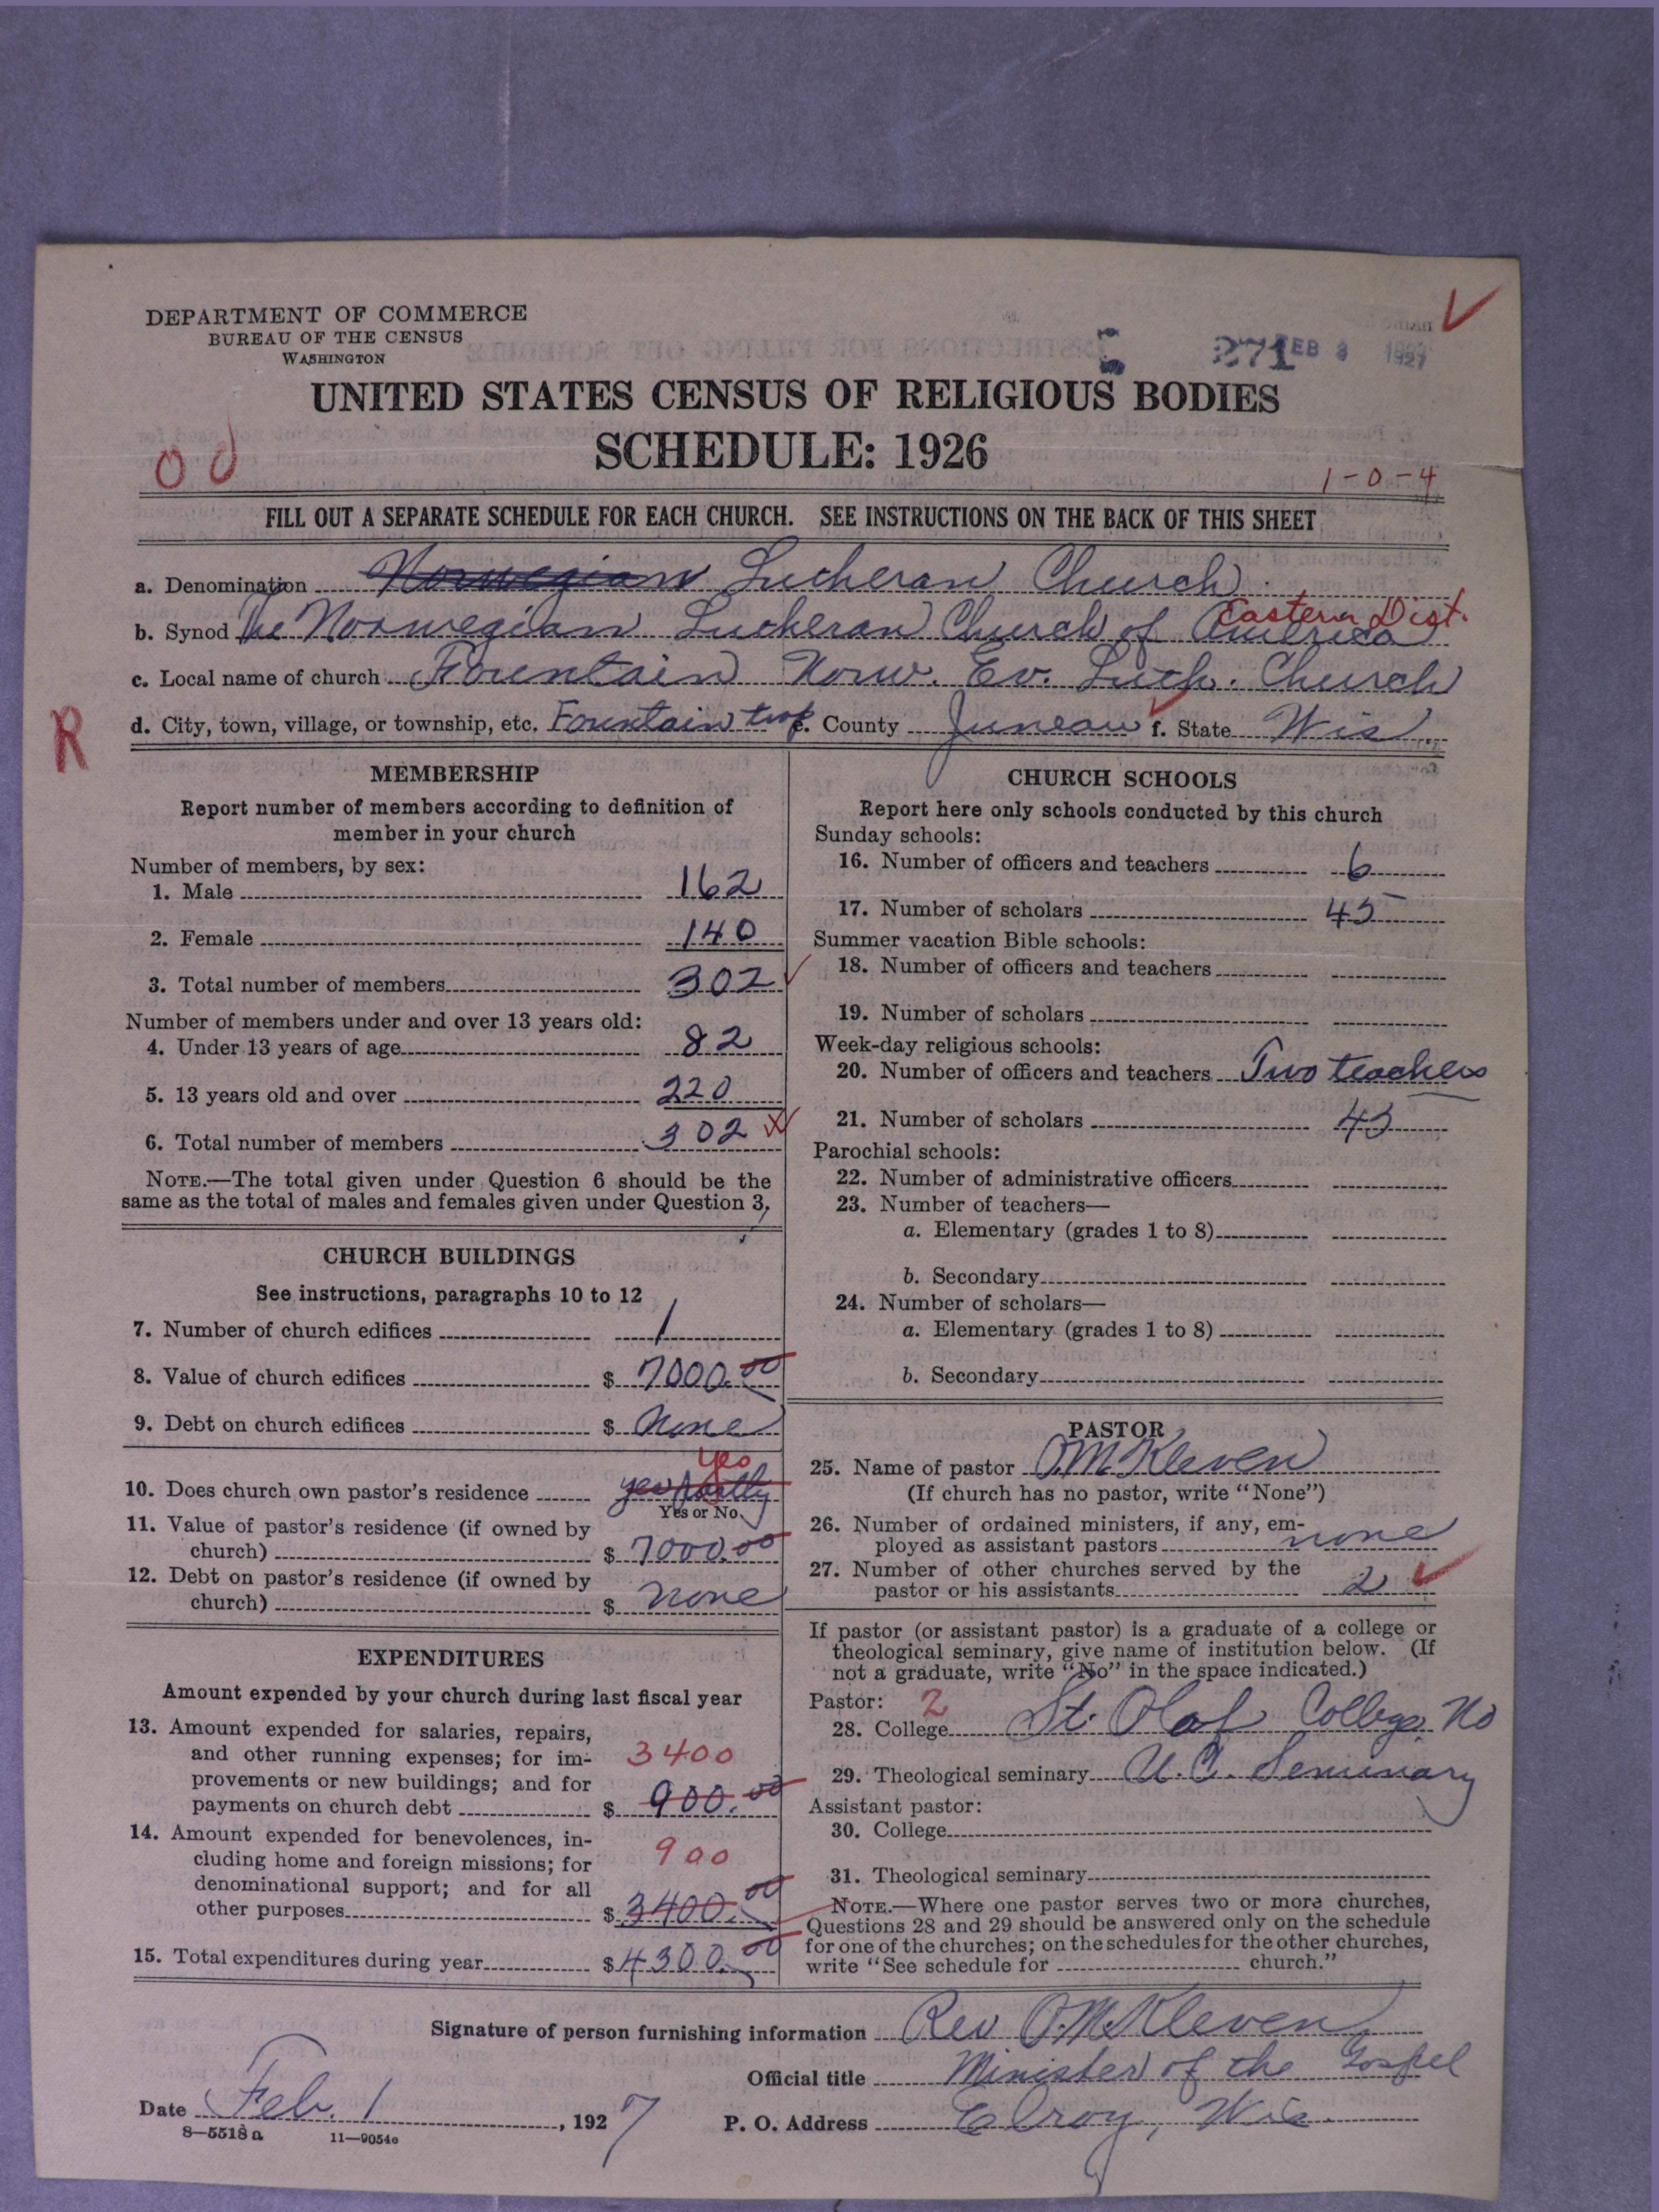 DEPARTMENT OF COMMERCE
BUREAU OF THE CENSUS
WASHINGTON
271 FEB 3 1927
UNITED STATES CENSUS OF RELIGIOUS BODIES
SCHEDULE: 1926
1-0-4
FILL OUT A SEPARATE SCHEDULE FOR EACH CHURCH. SEE INSTRUCTIONS ON THE BACK OF THIS SHEET
a. Denomination Norwegian Lutheran Church
Eastern Dist.
b. Synod The Norwegian Lutheran Church of America
c. Local name of church Fountain Norw. Ev. Luth. Church
R
d. City, town, village, or township, etc. Fountain twp e. County Juneau f. State Wis.
MEMBERSHIP
Report number of members according to definition of
member in your church
Number of members, by sex:
1. Male 162
2. Female 140
3. Total number of members 302
Number of members under and over 13 years old:
4. Under 13 years of age 82
5. 13 years old and over 220
6. Total number of members 302
NOTE.—The total given under Question 6 should be the
same as the total of males and females given under Question 3.
CHURCH BUILDINGS
See instructions, paragraphs 10 to 12
7. Number of church edifices 1
8. Value of church edifices $ 7000.00
9. Debt on church edifices $ None
yes
10. Does church own pastor's residence yes partly
Yes or No
11. Value of pastor's residence (if owned by
church) $ 7000.00
12. Debt on pastor's residence (if owned by
church) $ none
EXPENDITURES
Amount expended by your church during last fiscal year
13. Amount expended for salaries, repairs,
and other running expenses; for im-
3400
provements or new buildings; and for
payments on church debt $ 900.00
14. Amount expended for benevolences, in-
cluding home and foreign missions; for
900
denominational support; and for all
other purposes $ 3400.00
15. Total expenditures during year $ 4300.00
CHURCH SCHOOLS
Report here only schools conducted by this church
Sunday schools:
16. Number of officers and teachers 6
17. Number of scholars 45
Summer vacation Bible schools:
18. Number of officers and teachers
19. Number of scholars
Week-day religious schools:
20. Number of officers and teachers Two teachers
21. Number of scholars 45
Parochial schools:
22. Number of administrative officers
23. Number of teachers—
a. Elementary (grades 1 to 8)
b. Secondary
24. Number of scholars—
a. Elementary (grades 1 to 8)
b. Secondary
PASTOR
25. Name of pastor O.M. Kleven
(If church has no pastor, write "None")
26. Number of ordained ministers, if any, em-
ployed as assistant pastors none
27. Number of other churches served by the
pastor or his assistants 2
If pastor (or assistant pastor) is a graduate of a college or
theological seminary, give name of institution below. (If
not a graduate, write "No" in the space indicated.)
Pastor: 2
28. College St. Olaf College No
29. Theological seminary U.C. Seminary
Assistant pastor:
30. College
31. Theological seminary
NOTE.—Where one pastor serves two or more churches,
Questions 28 and 29 should be answered only on the schedule
for one of the churches; on the schedules for the other churches,
write "See schedule for church."
Signature of person furnishing information Rev O.M. Kleven
Official title Minister of the Gospel
Date Feb. 1, 1927 P. O. Address Elroy, Wis.
8-5518 a 11—9054e